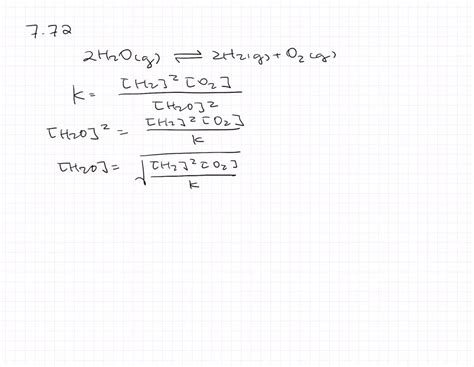 7.72
2H₂O(g) ⇌ 2H₂(g) + O₂(g)
K = [H₂]²[O₂] / [H₂O]²
[H₂O]² = [H₂]²[O₂] / K
[H₂O] = √([H₂]²[O₂] / K)